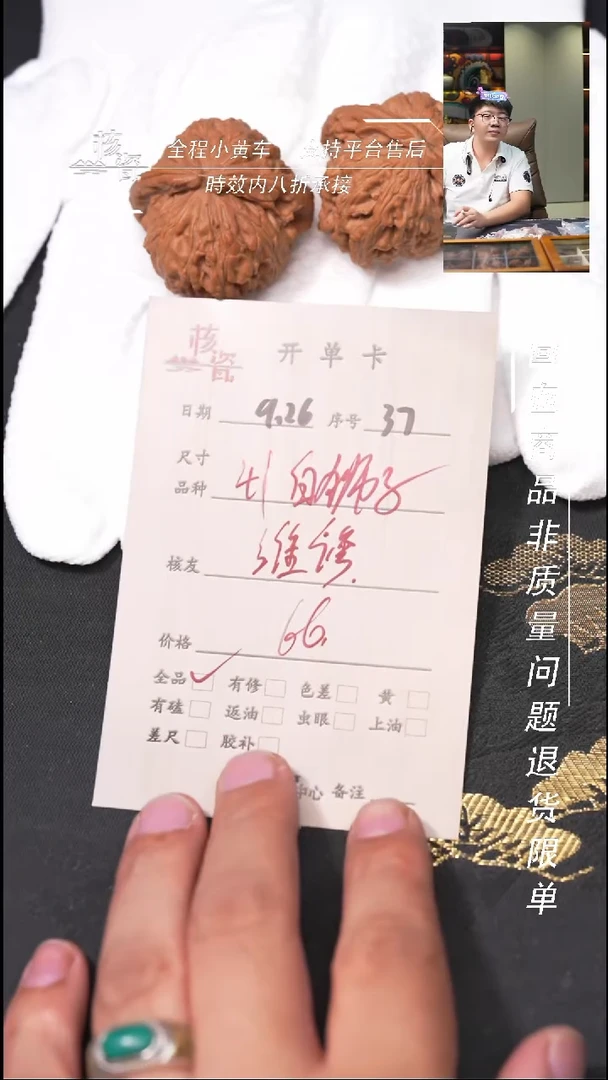 核瓷
全程小黄车 支持平台售后
時效内八折承接
核瓷
开单卡
日期 9.26 序号 37
尺寸
品种 41 白狮子
核友
价格 66.
全品 ✓ 有修 色差 黄
有磕 返油 虫眼 上油
差尺 胶补
心 备注
商品非质量问题退货限单